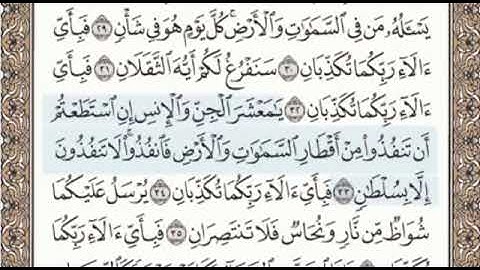 يَسْـَٔلُهُۥ مَن فِى ٱلسَّمَٰوَٰتِ وَٱلْأَرْضِ ۚ كُلَّ يَوْمٍ هُوَ فِى شَأْنٍ ٢٩ فَبِأَىِّ
ءَالَآءِ رَبِّكُمَا تُكَذِّبَانِ ٣٠ سَنَفْرُغُ لَكُمْ أَيُّهَ ٱلثَّقَلَانِ ٣١ فَبِأَىِّ
ءَالَآءِ رَبِّكُمَا تُكَذِّبَانِ ٣٢ يَٰمَعْشَرَ ٱلْجِنِّ وَٱلْإِنسِ إِنِ ٱسْتَطَعْتُمْ
أَن تَنفُذُوا۟ مِنْ أَقْطَارِ ٱلسَّمَٰوَٰتِ وَٱلْأَرْضِ فَٱنفُذُوا۟ ۚ لَا تَنفُذُونَ
إِلَّا بِسُلْطَٰنٍ ٣٣ فَبِأَىِّ ءَالَآءِ رَبِّكُمَا تُكَذِّبَانِ ٣٤ يُرْسَلُ عَلَيْكُمَا
شُوَاظٌ مِّن نَّارٍ وَنُحَاسٌ فَلَا تَنتَصِرَانِ ٣٥ فَبِأَىِّ ءَالَآءِ رَبِّكُمَا